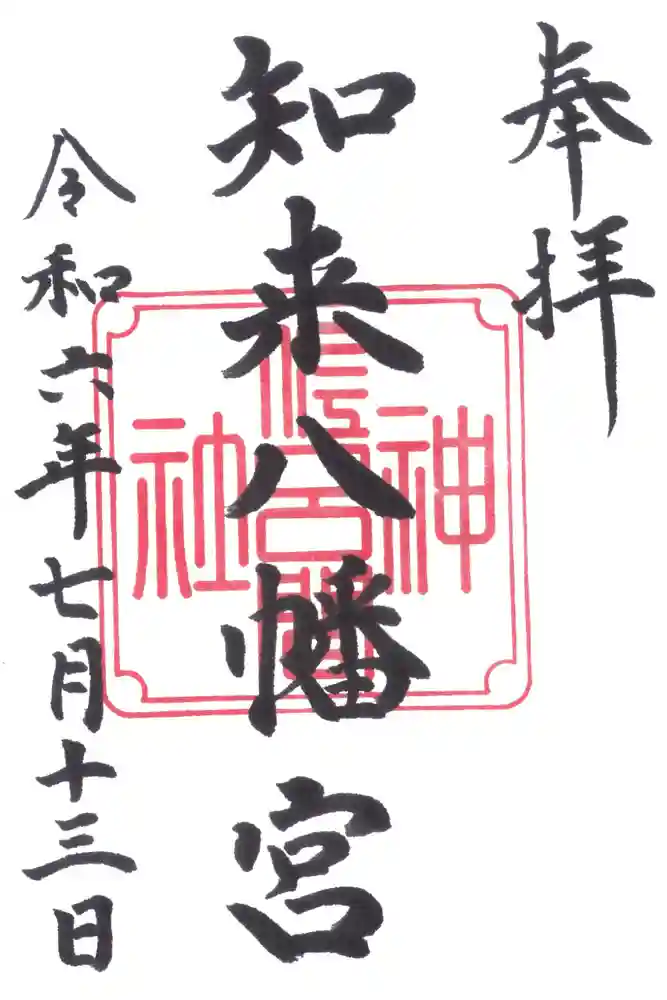 奉拝
知来八幡宮
令和六年七月十三日